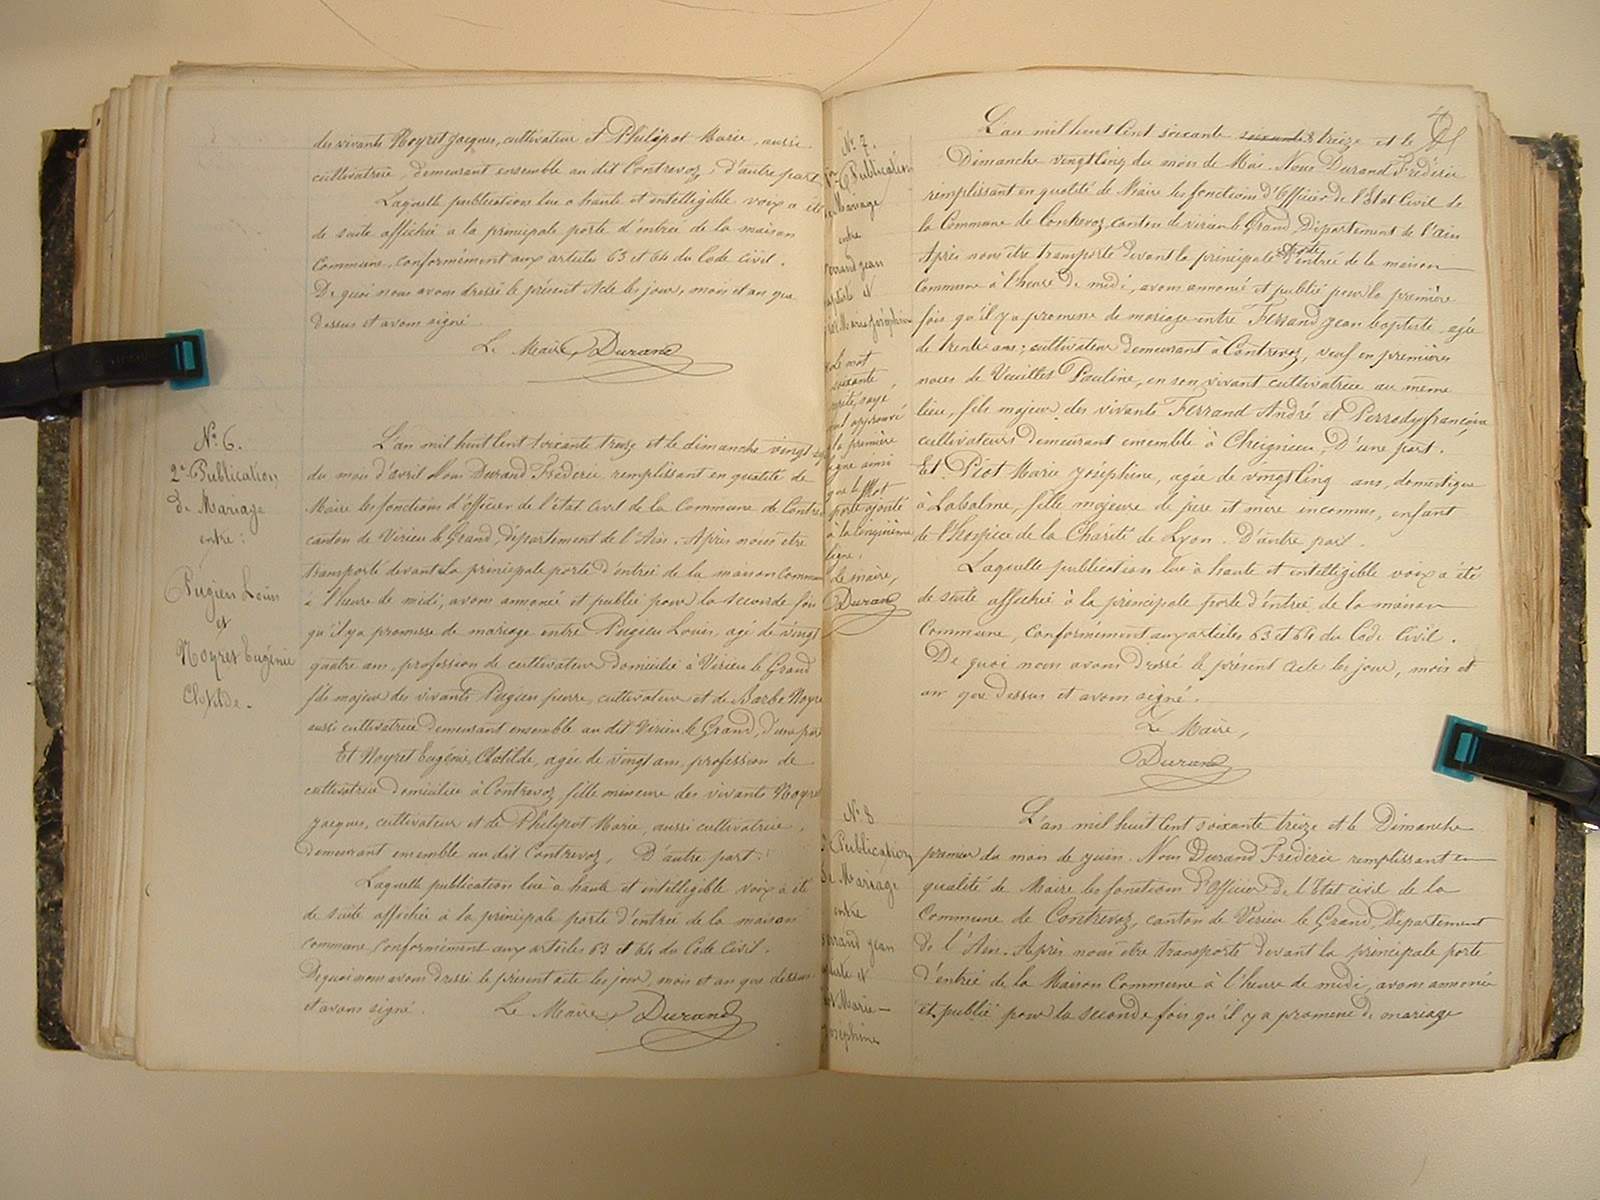 des vivants Noyret Jacques, cultivateur et Philipot Marie, aussi
cultivatrice, demeurant ensemble au dit Contrevoz, d'autre part
Laquelle publication lue a haute et intelligible voix a été
de suite affichée a la principale porte d'entrée de la maison
Commune, conformément aux articles 63 et 64 du Code civil.
De quoi nous avons dressé le présent Acte les jour, mois et an que
dessus et avons signé
Le Maire Durand
N° 6.
2e Publication
de Mariage
entre :
Pugieu Louis
et
Noyret Eugénie
Clotilde.
L'an mil huit Cent soixante treize et le dimanche vingt
du mois d'avril Nous Durand Frédéric remplissant en qualité de
Maire les fonctions d'officier de l'état civil de la Commune de Contre
canton de Virieu le Grand, département de l'Ain. Après nous être
transporté devant la principale porte d'entrée de la maison Commune
à l'heure de midi, avons annoncé et publié pour la seconde fois
qu'il y a promesse de mariage entre Pugieu Louis, agé de vingt
quatre ans, profession de cultivateur domicilié à Virieu le Grand
fils majeur des vivants Pugieu pierre, cultivateur et de Barbe Noyre
aussi cultivatrice demeurant ensemble au dit Virieu le Grand, d'une part
Et Noyret Eugénie, Clotilde, agée de vingt ans, profession de
cultivatrice domiciliée à Contrevoz fille mineure des vivants Noyre
Jacques, cultivateur et de Philipot Marie, aussi cultivatrice,
demeurant ensemble au dit Contrevoz, D'autre part.
Laquelle publication lue à haute et intelligible voix a été
de suite affichée à la principale porte d'entrée de la maison
commune conformément aux articles 63 et 64 du Code Civil.
De quoi nous avons dressé le présent acte les jour, mois et an que dessus
et avons signé. Le Maire Durand
N° 7.
1re Publication
de Mariage
entre
Ferrand jean
baptiste et
Piot Marie Joséphine
Le mot
soixante,
rayé
approuvé
la première
ligne ainsi
que le Mot
porte ajouté
à la cinquième
ligne.
Le maire,
Durand
L'an mil huit Cent soixante soixante & treize et le
Dimanche vingt Cinq du mois de Mai. Nous Durand Frédéric
remplissant en qualité de Maire les fonctions d'Officier de l'Etat Civil de
la Commune de Contrevoz, canton de virieu le Grand, Département de l'Ain
Après nous être transporté devant la principale porte d'entrée de la maison
Commune à l'heure de midi, avons annoncé et publié pour la première
fois qu'il y a promesse de mariage entre Ferrand Jean baptiste agée
de trente ans ; cultivateur demeurant à Contrevoz, veuf en premières
noces de Vuilles Pauline, en son vivant cultivatrice au même
lieu, fils majeur des vivants Ferrand André et Perrody françoise
cultivateurs demeurant ensemble à Cheignieu, D'une part.
Et Piot Marie Joséphine, agée de vingt Cinq ans, domestique
à Labalme, fille majeure de père et mère inconnus, enfant
de l'hospice de la Charité de Lyon. D'autre part.
Laquelle publication lue à haute et intelligible voix a été
de suite affichée à la principale porte d'entrée de la maison
Commune, Conformément aux articles 63 et 64 du Code Civil.
De quoi nous avons dressé le présent acte les jour, mois et
an que dessus et avons signé.
Le Maire,
Durand
N° 8
2e Publication
de Mariage
entre
Ferrand jean
baptiste et
Piot Marie
Joséphine
L'an mil huit Cent soixante treize et le Dimanche
premier du mois de juin. Nous Durand Frédéric remplissant en
qualité de Maire les fonctions d'Officier de l'Etat civil de la
Commune de Contrevoz, canton de Virieu le Grand, Département
de l'Ain. Après nous être transporté devant la principale porte
d'entrée de la Maison Commune à l'heure de midi, avons annoncé
et publié pour la seconde fois qu'il y a promesse de mariage